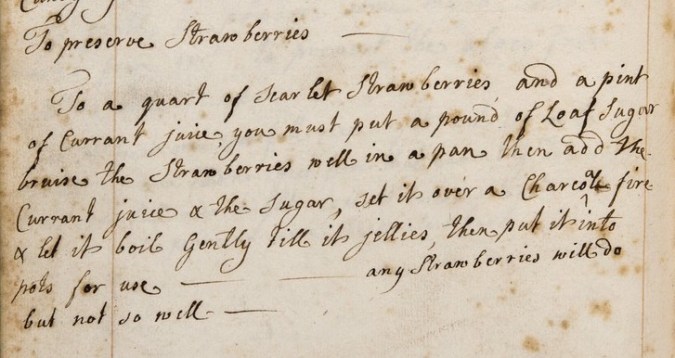 To preserve Strawberries
To a quart of Scarlet Strawberries, and a pint
of Currant juice, you must put a pound of Loaf Sugar
bruise the Strawberries well in a pan then add the
Currant juice & the Sugar, set it over a Charcole fire
& let it boil Gently till it jellies, then put it into
pots for use — — any Strawberries will do
but not so well —